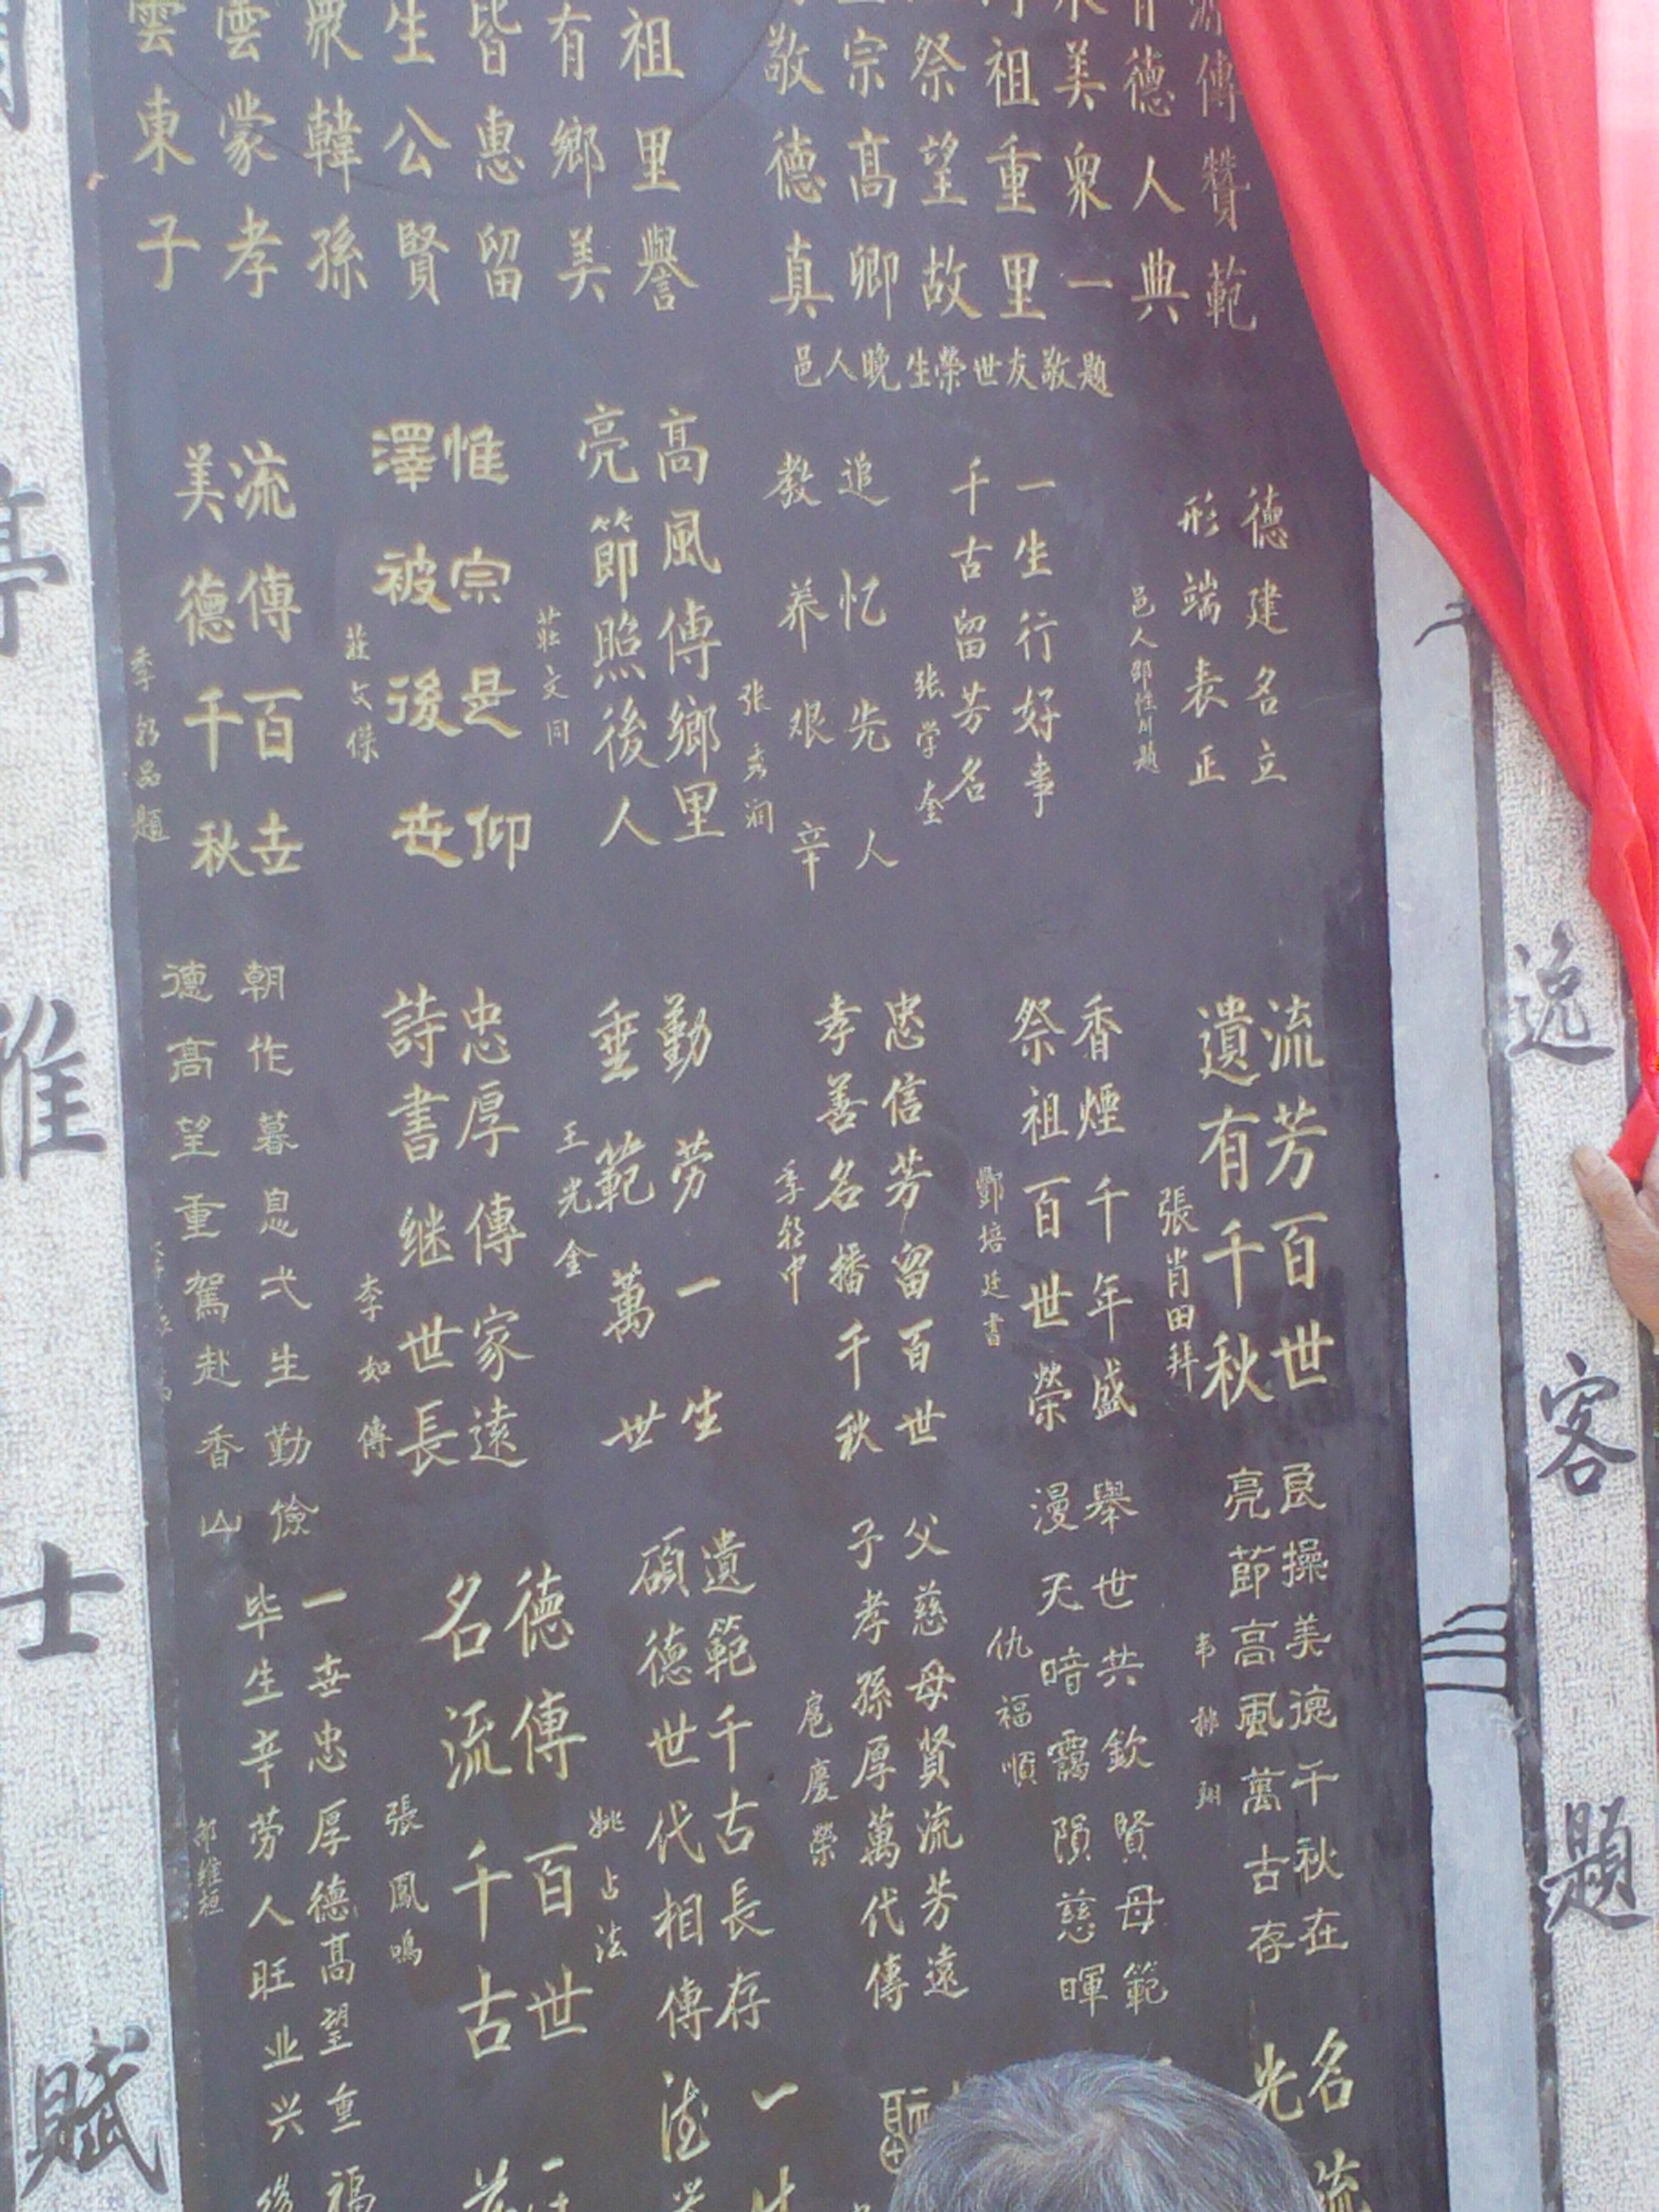 傳贊範
德人典
美衆一
祖重里
祭望故
宗髙卿
敬德真
邑人晚生榮世友敬題
祖里譽
有鄉美
皆惠留
生公賢
衆韓孫
雲蒙孝
雲東子
德建名立
形端表正
一生行好事
千古留芳名
张学奎
追忆先人
教养艰辛
张秀润
高風傳鄉里
亮節照後人
莊文同
惟宗是仰
澤被後世
莊文傑
流傳百世
美德千秋
季朝品題
流芳百世
遺有千秋
張肖田拜
香煙千年盛
祭祖百世榮
酆培廷書
忠信芳留百世
孝善名播千秋
季朝中
勤劳一生
垂範萬世
王光金
忠厚傳家遠
詩書继世長
李如傳
朝作暮息弍生勤儉
德高望重駕赴香山
良操美德千秋在
亮節高風萬古存
韦
舉世共欽賢母範
漫天暗靄隕慈暉
仇福順
父慈母賢流芳遠
子孝孫厚萬代傳
扈慶榮
遺範千古長存
碩德世代相傳
姚占法
德傳百世
名流千古
張鳳鳴
一世忠厚德髙望重福
毕生辛劳人旺业兴後
邹维桓
名流
先
一生
逸客題
雅士賦